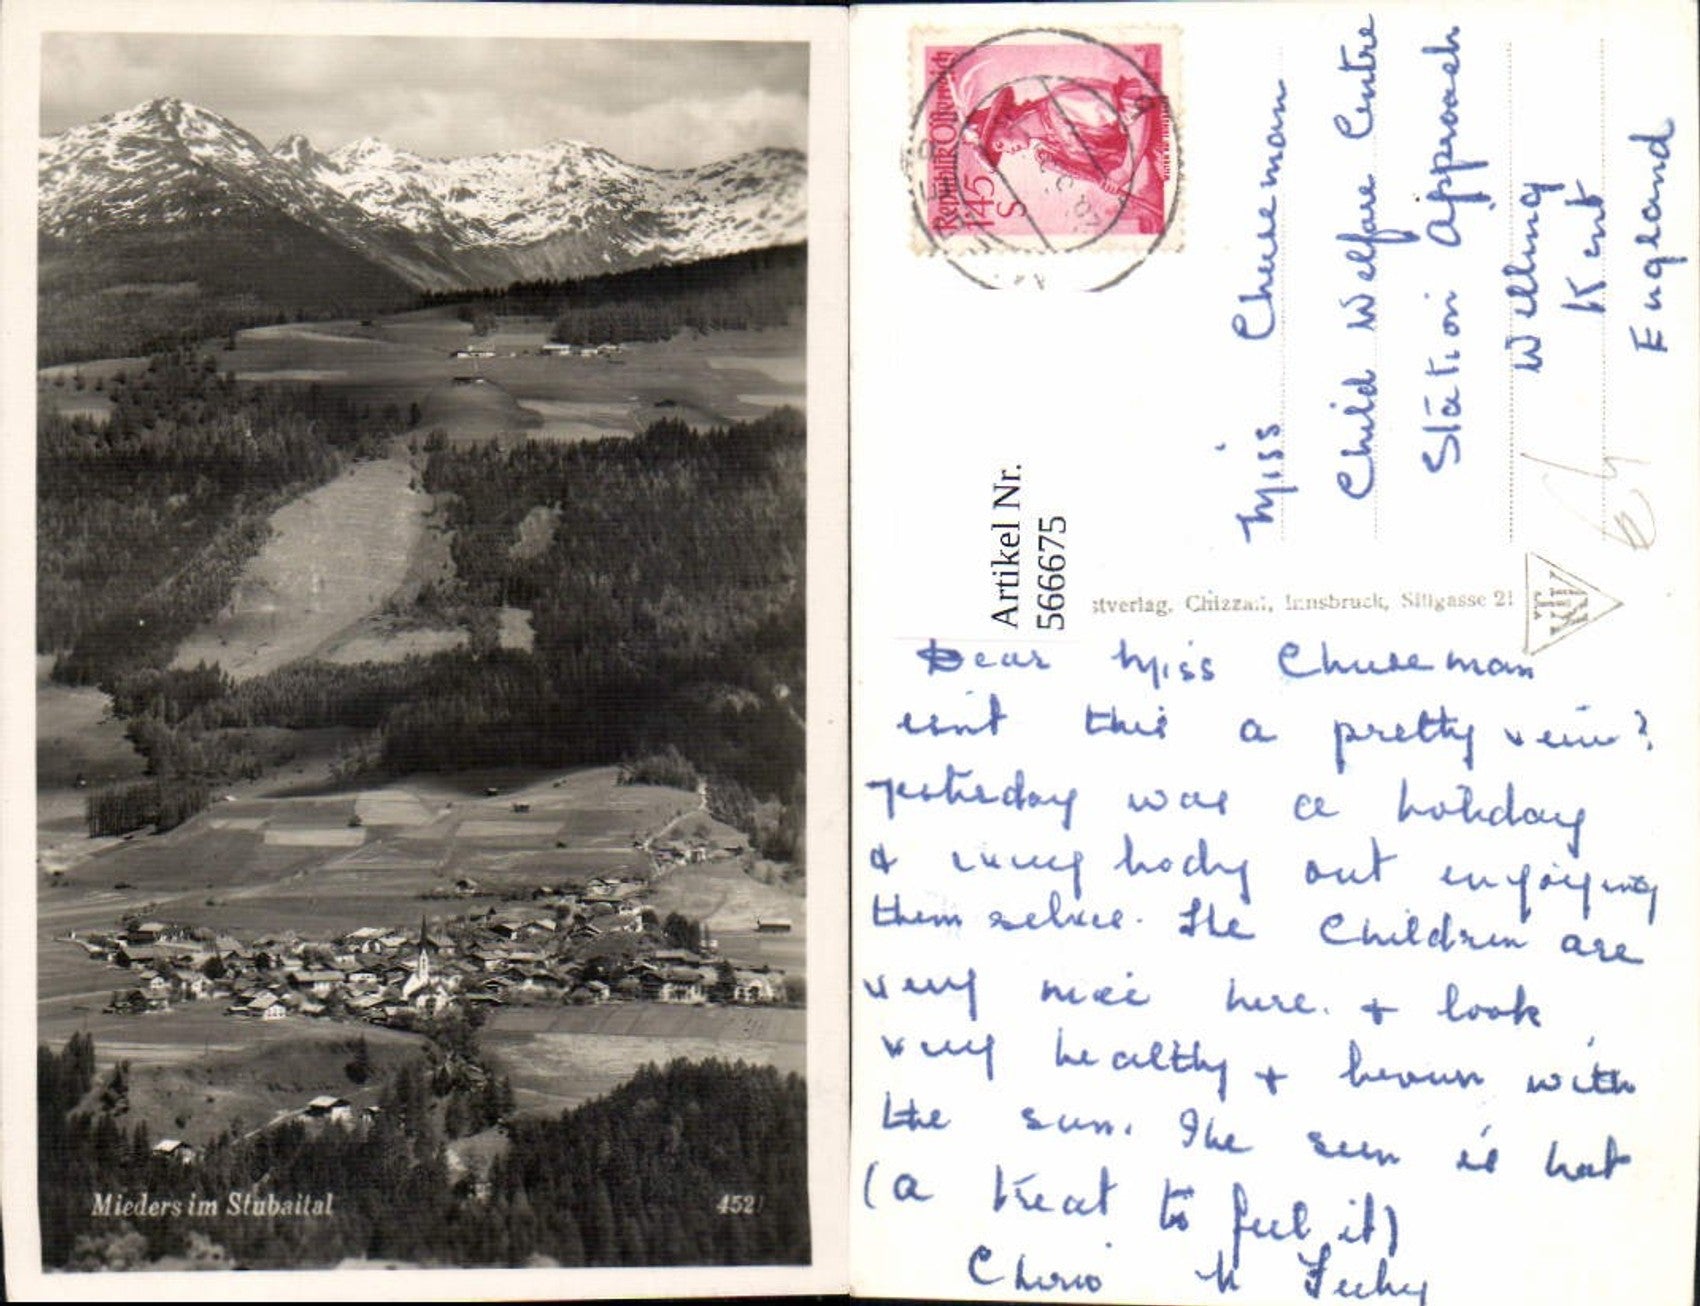 Mieders im Stubaital
452
Republik Österreich
1.45
S
Miss Chuseman
Child Welfare Centre
Station Approach
Welling
Kent
England
Artikel Nr.
566675
stverlag, Chizzali, Innsbruck, Sillgasse 21
Dear Miss Chuseman
isn't this a pretty view?
yesterday was a holiday
& every body out enjoying
them selves. The Children are
very nice here. & look
very healthy & brown with
the sun. The sun is hot
(a treat to feel it)
Cheerio M